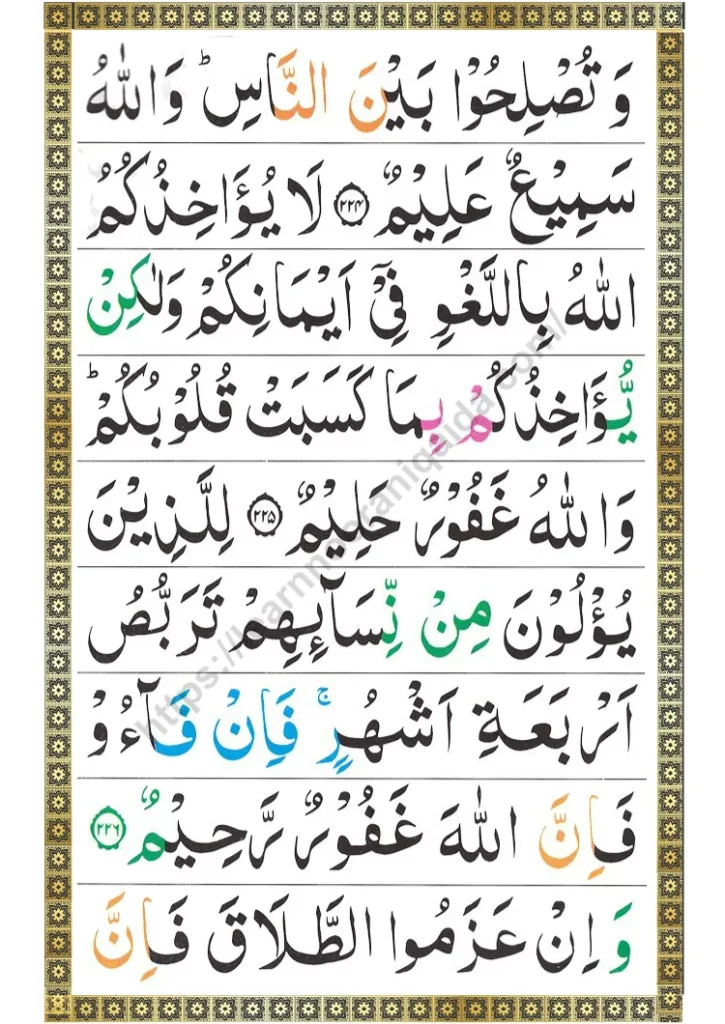 وَ تُصْلِحُوْا بَيْنَ النَّاسِ ؕ وَاللّٰهُ
سَمِيْعٌ عَلِيْمٌ ﴿۲۲۴﴾ لَا يُؤَاخِذُكُمُ
اللّٰهُ بِاللَّغْوِ فِيْۤ اَيْمَانِكُمْ وَلٰكِنْ
يُّؤَاخِذُكُمْ بِمَا كَسَبَتْ قُلُوْبُكُمْ ؕ
وَاللّٰهُ غَفُوْرٌ حَلِيْمٌ ﴿۲۲۵﴾ لِلَّذِيْنَ
يُؤْلُوْنَ مِنْ نِّسَآىِٕهِمْ تَرَبُّصُ
اَرْبَعَةِ اَشْهُرٍ ۚ فَاِنْ فَآءُوْ
فَاِنَّ اللّٰهَ غَفُوْرٌ رَّحِيْمٌ ﴿۲۲۶﴾
وَ اِنْ عَزَمُوا الطَّلَاقَ فَاِنَّ
https://learnnooraniqaida.com/